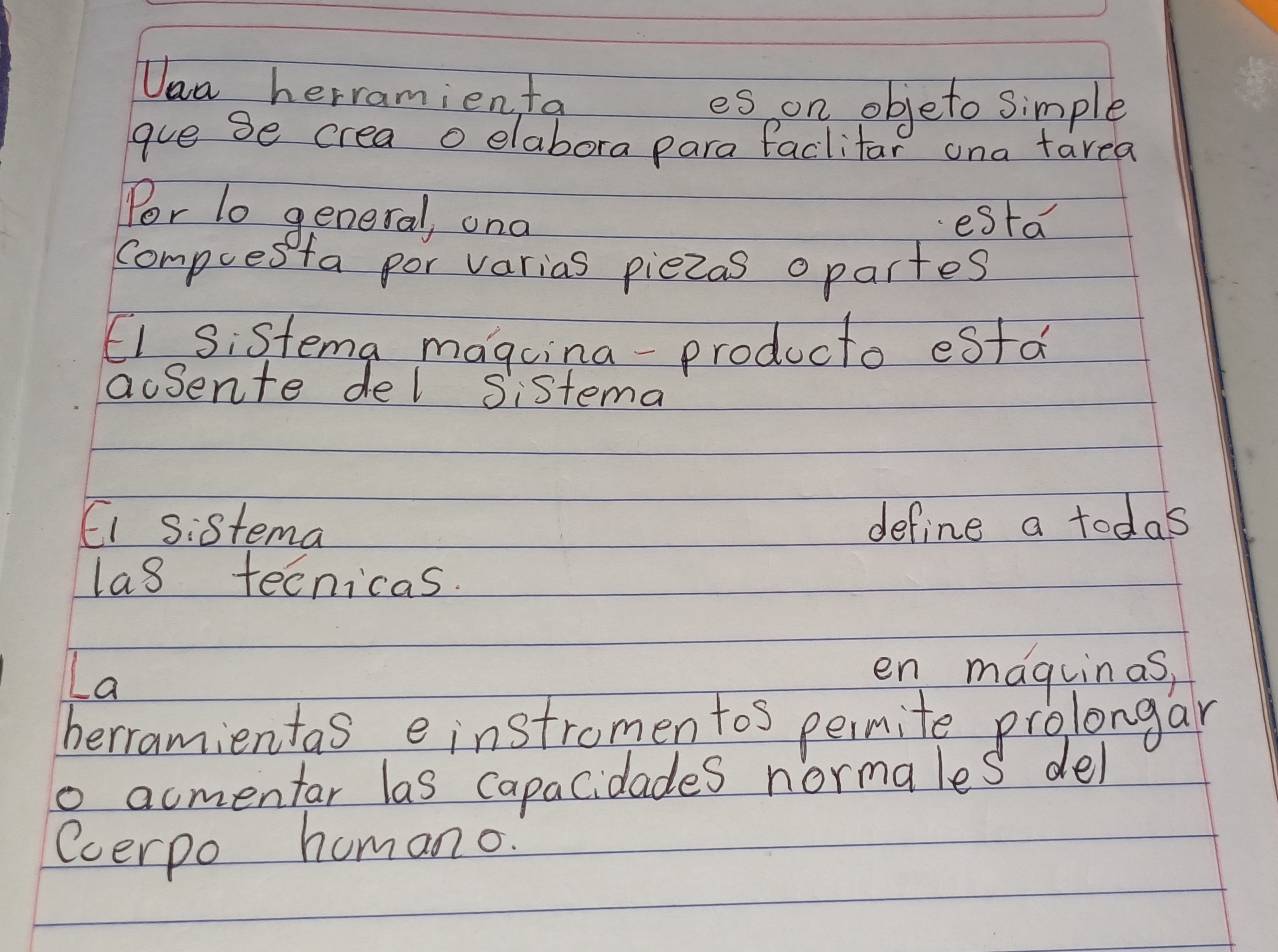 Una herramienta es un objeto simple
que se crea o elabora para faclitar una tarea
Por lo general, una está
compuesta por varias piezas o partes
El sistema máquina - producto está
ausente del sistema
El sistema define a todas
las técnicas.
La en máquinas,
herramientas e instrumentos permite prolongar
o aumentar las capacidades normales del
Cuerpo humano.